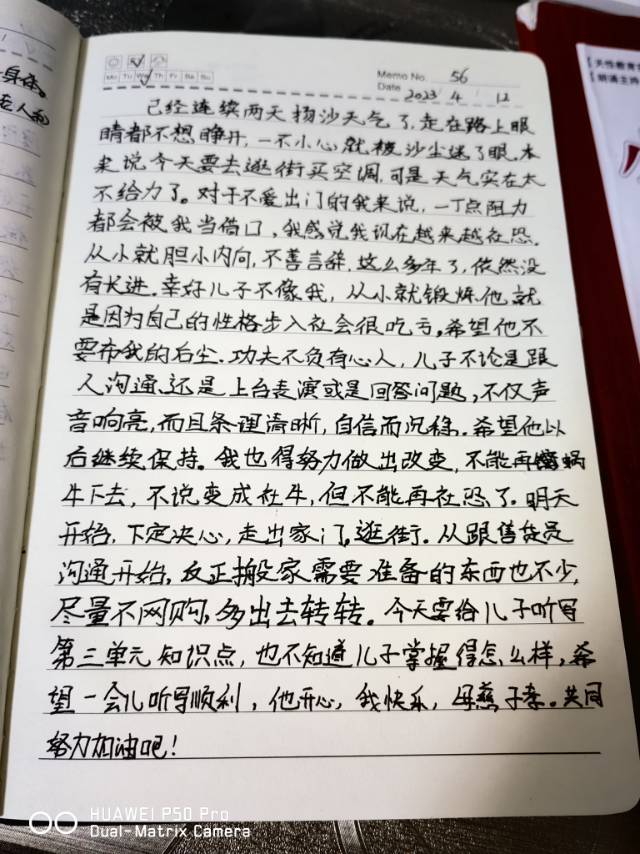 身体。
在人和
Mo Tu We Th Fr Sa Su
Memo No. 56
Date 2023 / 4 / 12
已经连续两天扬沙天气了,走在路上眼
睛都不想睁开,一不小心就被沙尘迷了眼.本
来说今天要去逛街买空调,可是天气实在太
不给力了。对于不爱出门的我来说,一丁点阻力
都会被我当借口,我感觉我现在越来越社恐.
从小就胆小内向,不善言辞,这么多年了,依然没
有长进.幸好儿子不像我,从小就锻炼他,就
是因为自己的性格步入社会很吃亏,希望他不
要布我的后尘.功夫不负有心人,儿子不论是跟
人沟通、还是上台表演或是回答问题,不仅声
音响亮,而且条理清晰,自信而沉稳.希望他以
后继续保持。我也得努力做出改变,不能再蜗
牛下去,不说变成社牛,但不能再社恐了.明天
开始,下定决心,走出家门,逛街.从跟售货员
沟通开始,反正搬家需要准备的东西也不少,
尽量不网购,多出去转转。今天要给儿子听写
第三单元知识点,也不知道儿子掌握得怎么样,希
望一会儿听写顺利,他开心,我快乐,母慈子孝。共同
努力加油吧!
天性教育
朗诵主持
HUAWEI P50 Pro
Dual-Matrix Camera